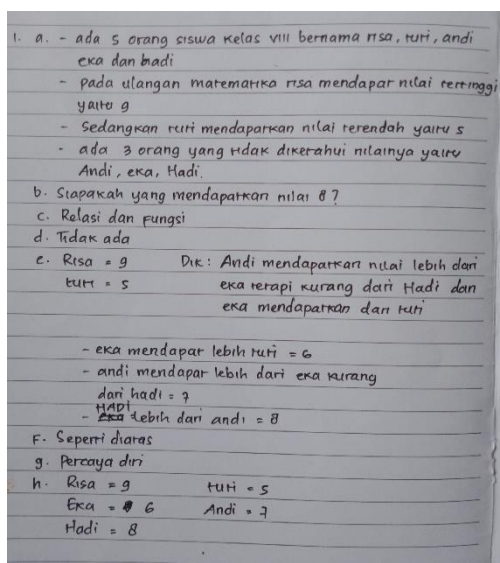 1. a. - ada 5 orang siswa kelas VIII bernama risa, turi, andi
eka dan hadi
- pada ulangan matematika risa mendapat nilai tertinggi
yaitu 9
- Sedangkan turi mendapatkan nilai terendah yaitu 5
- ada 3 orang yang tidak diketahui nilainya yaitu
Andi, eka, Hadi.
b. Siapakah yang mendapatkan nilai 8?
c. Relasi dan fungsi
d. Tidak ada
e. Risa = 9 Dik: Andi mendapatkan nilai lebih dari
turi = 5 eka tetapi kurang dari Hadi dan
eka mendapatkan dari turi
- eka mendapat lebih turi = 6
- andi mendapat lebih dari eka kurang
dari hadi = 7
- HADI lebih dari andi = 8
F. Seperti diatas
g. Percaya diri
h. Risa = 9 turi = 5
Eka = 6 Andi = 7
Hadi = 8